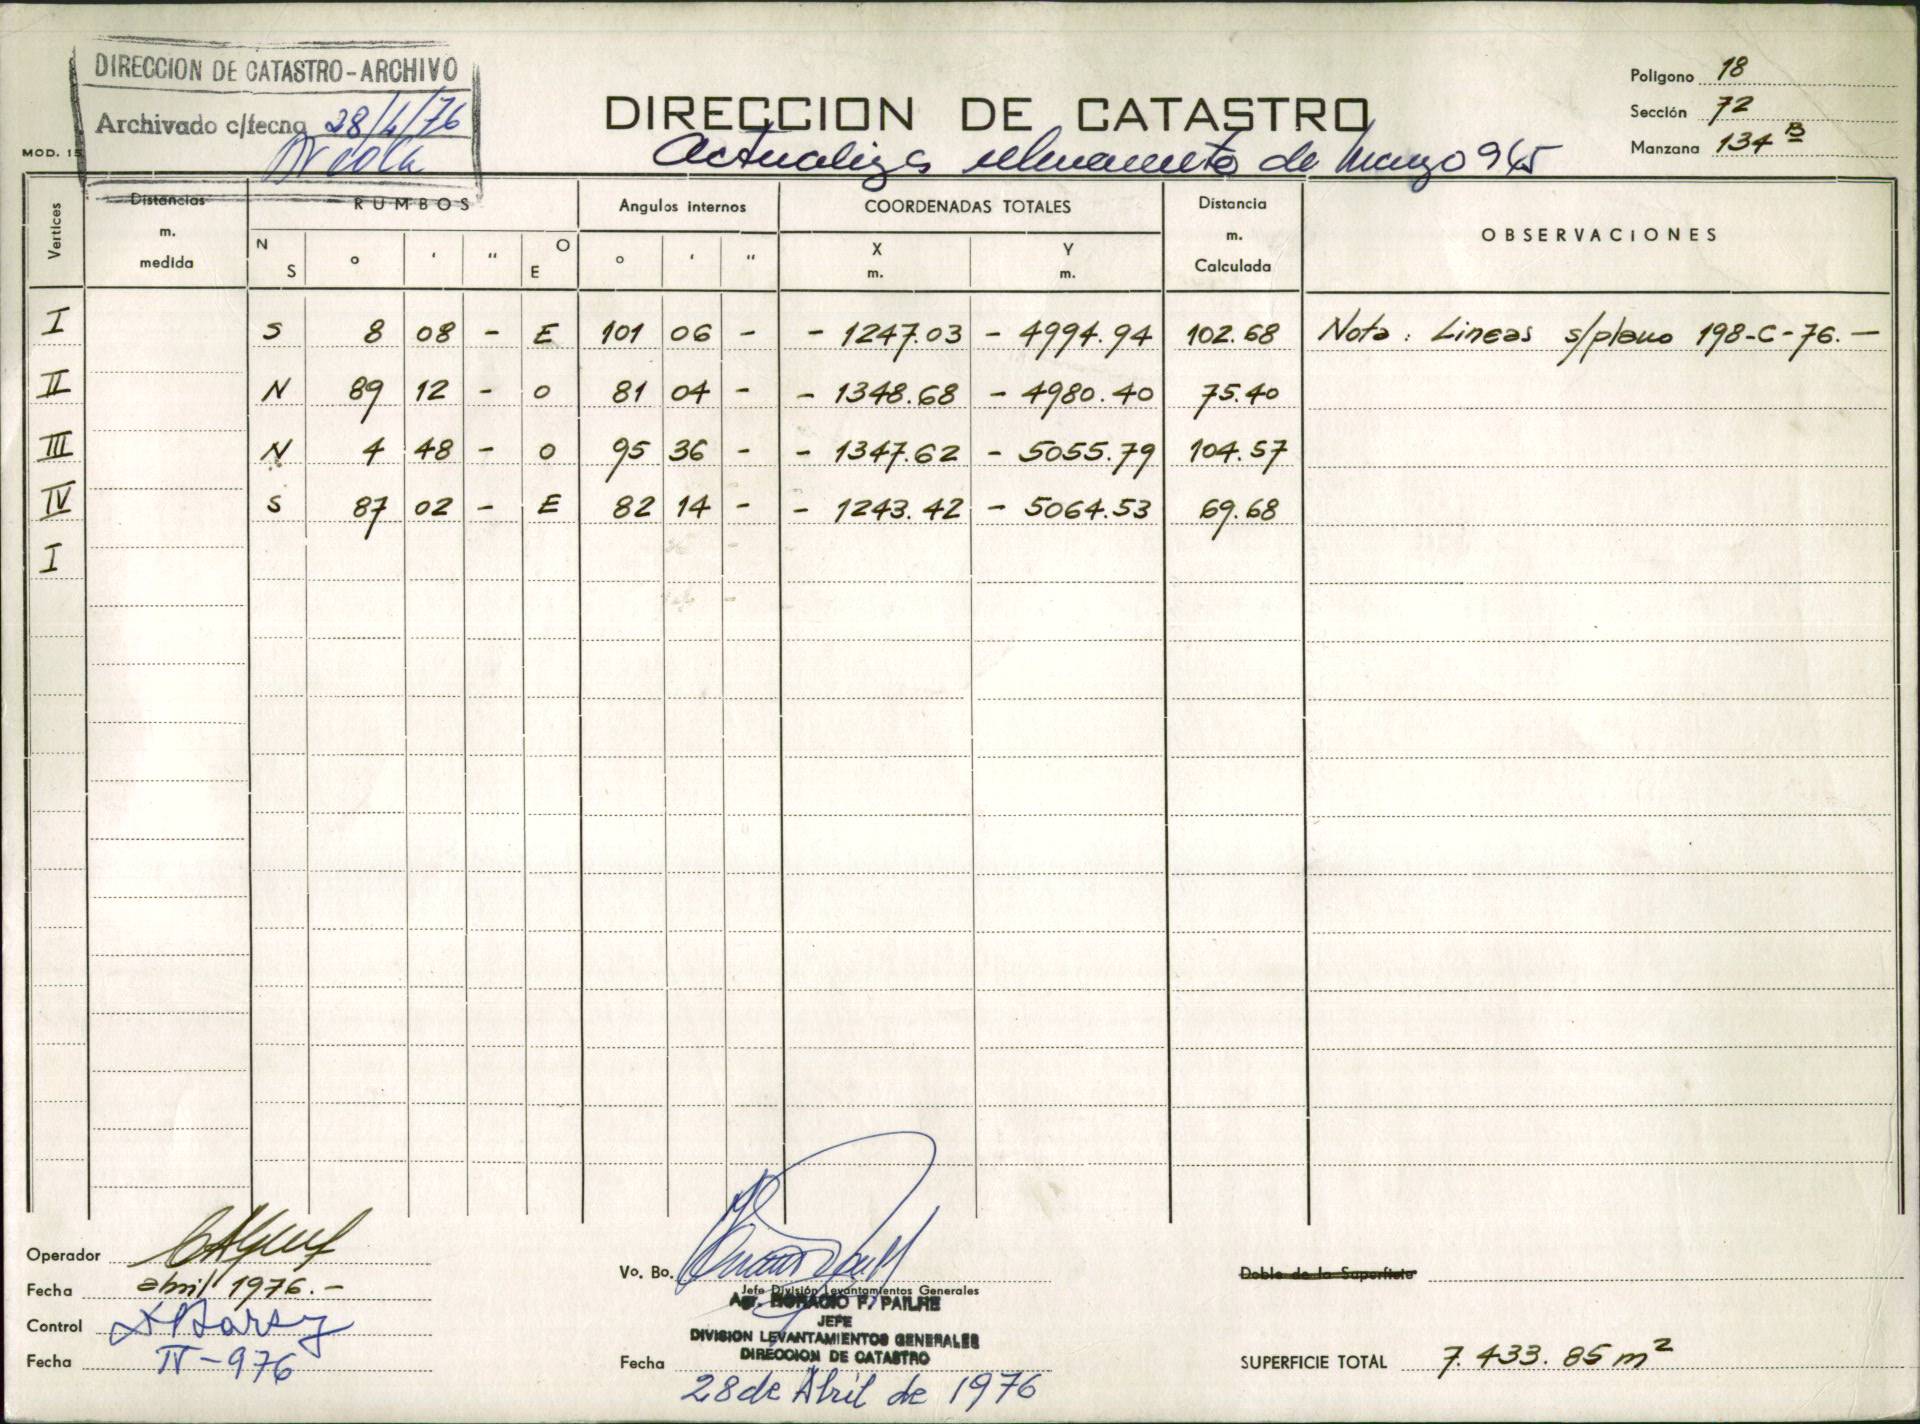 DIRECCION DE CATASTRO-ARCHIVO
Archivado c/fecha 28/4/76
Poligono 18
Sección 72
Manzana 134 B
DIRECCION DE CATASTRO
Actualiza relevamiento de Marzo 945
MOD. 15
Vertices
Distancias m. medida
RUMBOS
N S ° ' " O E
Angulos internos
° ' "
COORDENADAS TOTALES
X m. Y m.
Distancia m. Calculada
OBSERVACIONES
I S 8 08 - E 101 06 - - 1247.03 - 4994.94 102.68 Nota: Lineas s/plano 198-C-76.-
II N 89 12 - O 81 04 - - 1348.68 - 4980.40 75.40
III N 4 48 - O 95 36 - - 1347.62 - 5055.79 104.57
IV S 87 02 - E 82 14 - - 1243.42 - 5064.53 69.68
I
Operador
Fecha abril 1976.-
Control
Fecha IV-976
Vo. Bo.
Jefe División Levantamientos Generales
HORACIO F. PAILHE
JEFE
DIVISION LEVANTAMIENTOS GENERALES
DIRECCION DE CATASTRO
Fecha
28 de Abril de 1976
Doble de la Superficie
SUPERFICIE TOTAL 7.433.85 m²